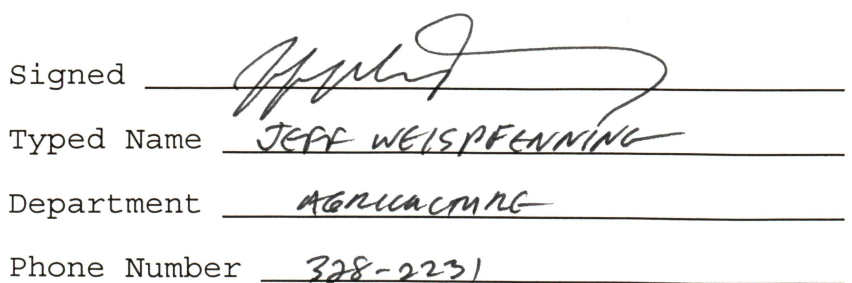 Signed
Typed Name JEFF WEISPFENNING
Department AGRICULTURE
Phone Number 328-2231